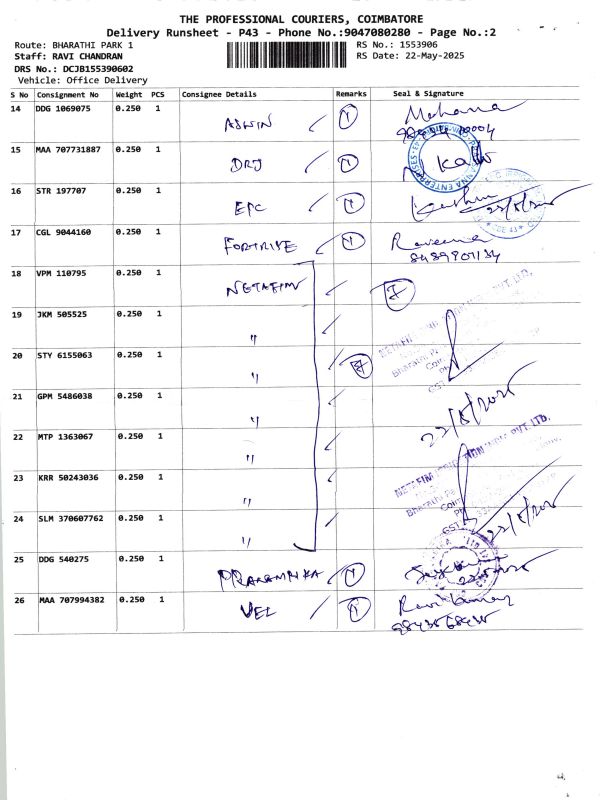 THE PROFESSIONAL COURIERS, COIMBATORE
Delivery Runsheet - P43 - Phone No.:9047080280 - Page No.:2
Route: BHARATHI PARK 1
RS No.: 1553906
Staff: RAVI CHANDRAN
RS Date: 22-May-2025
DRS No.: DCJB155390602
Vehicle: Office Delivery
S No Consignment No Weight PCS Consignee Details Remarks Seal & Signature
14 DDG 1069075 0.250 1 ASWIN 1 Mohana
15 MAA 707731887 0.250 1 DRJ 1
16 STR 197707 0.250 1 EPC 1
17 CGL 9044160 0.250 1 1 Raveena
8489901134
18 VPM 110795 0.250 1 NETAFIM 7
19 JKM 505525 0.250 1 "
20 STY 6155063 0.250 1 "
21 GPM 5486038 0.250 1 "
22/5/2025
22 MTP 1363067 0.250 1 "
23 KRR 50243036 0.250 1 "
24 SLM 370607762 0.250 1 "
22/5/2025
25 DDG 540275 0.250 1 1
26 MAA 707994382 0.250 1 VEL 1